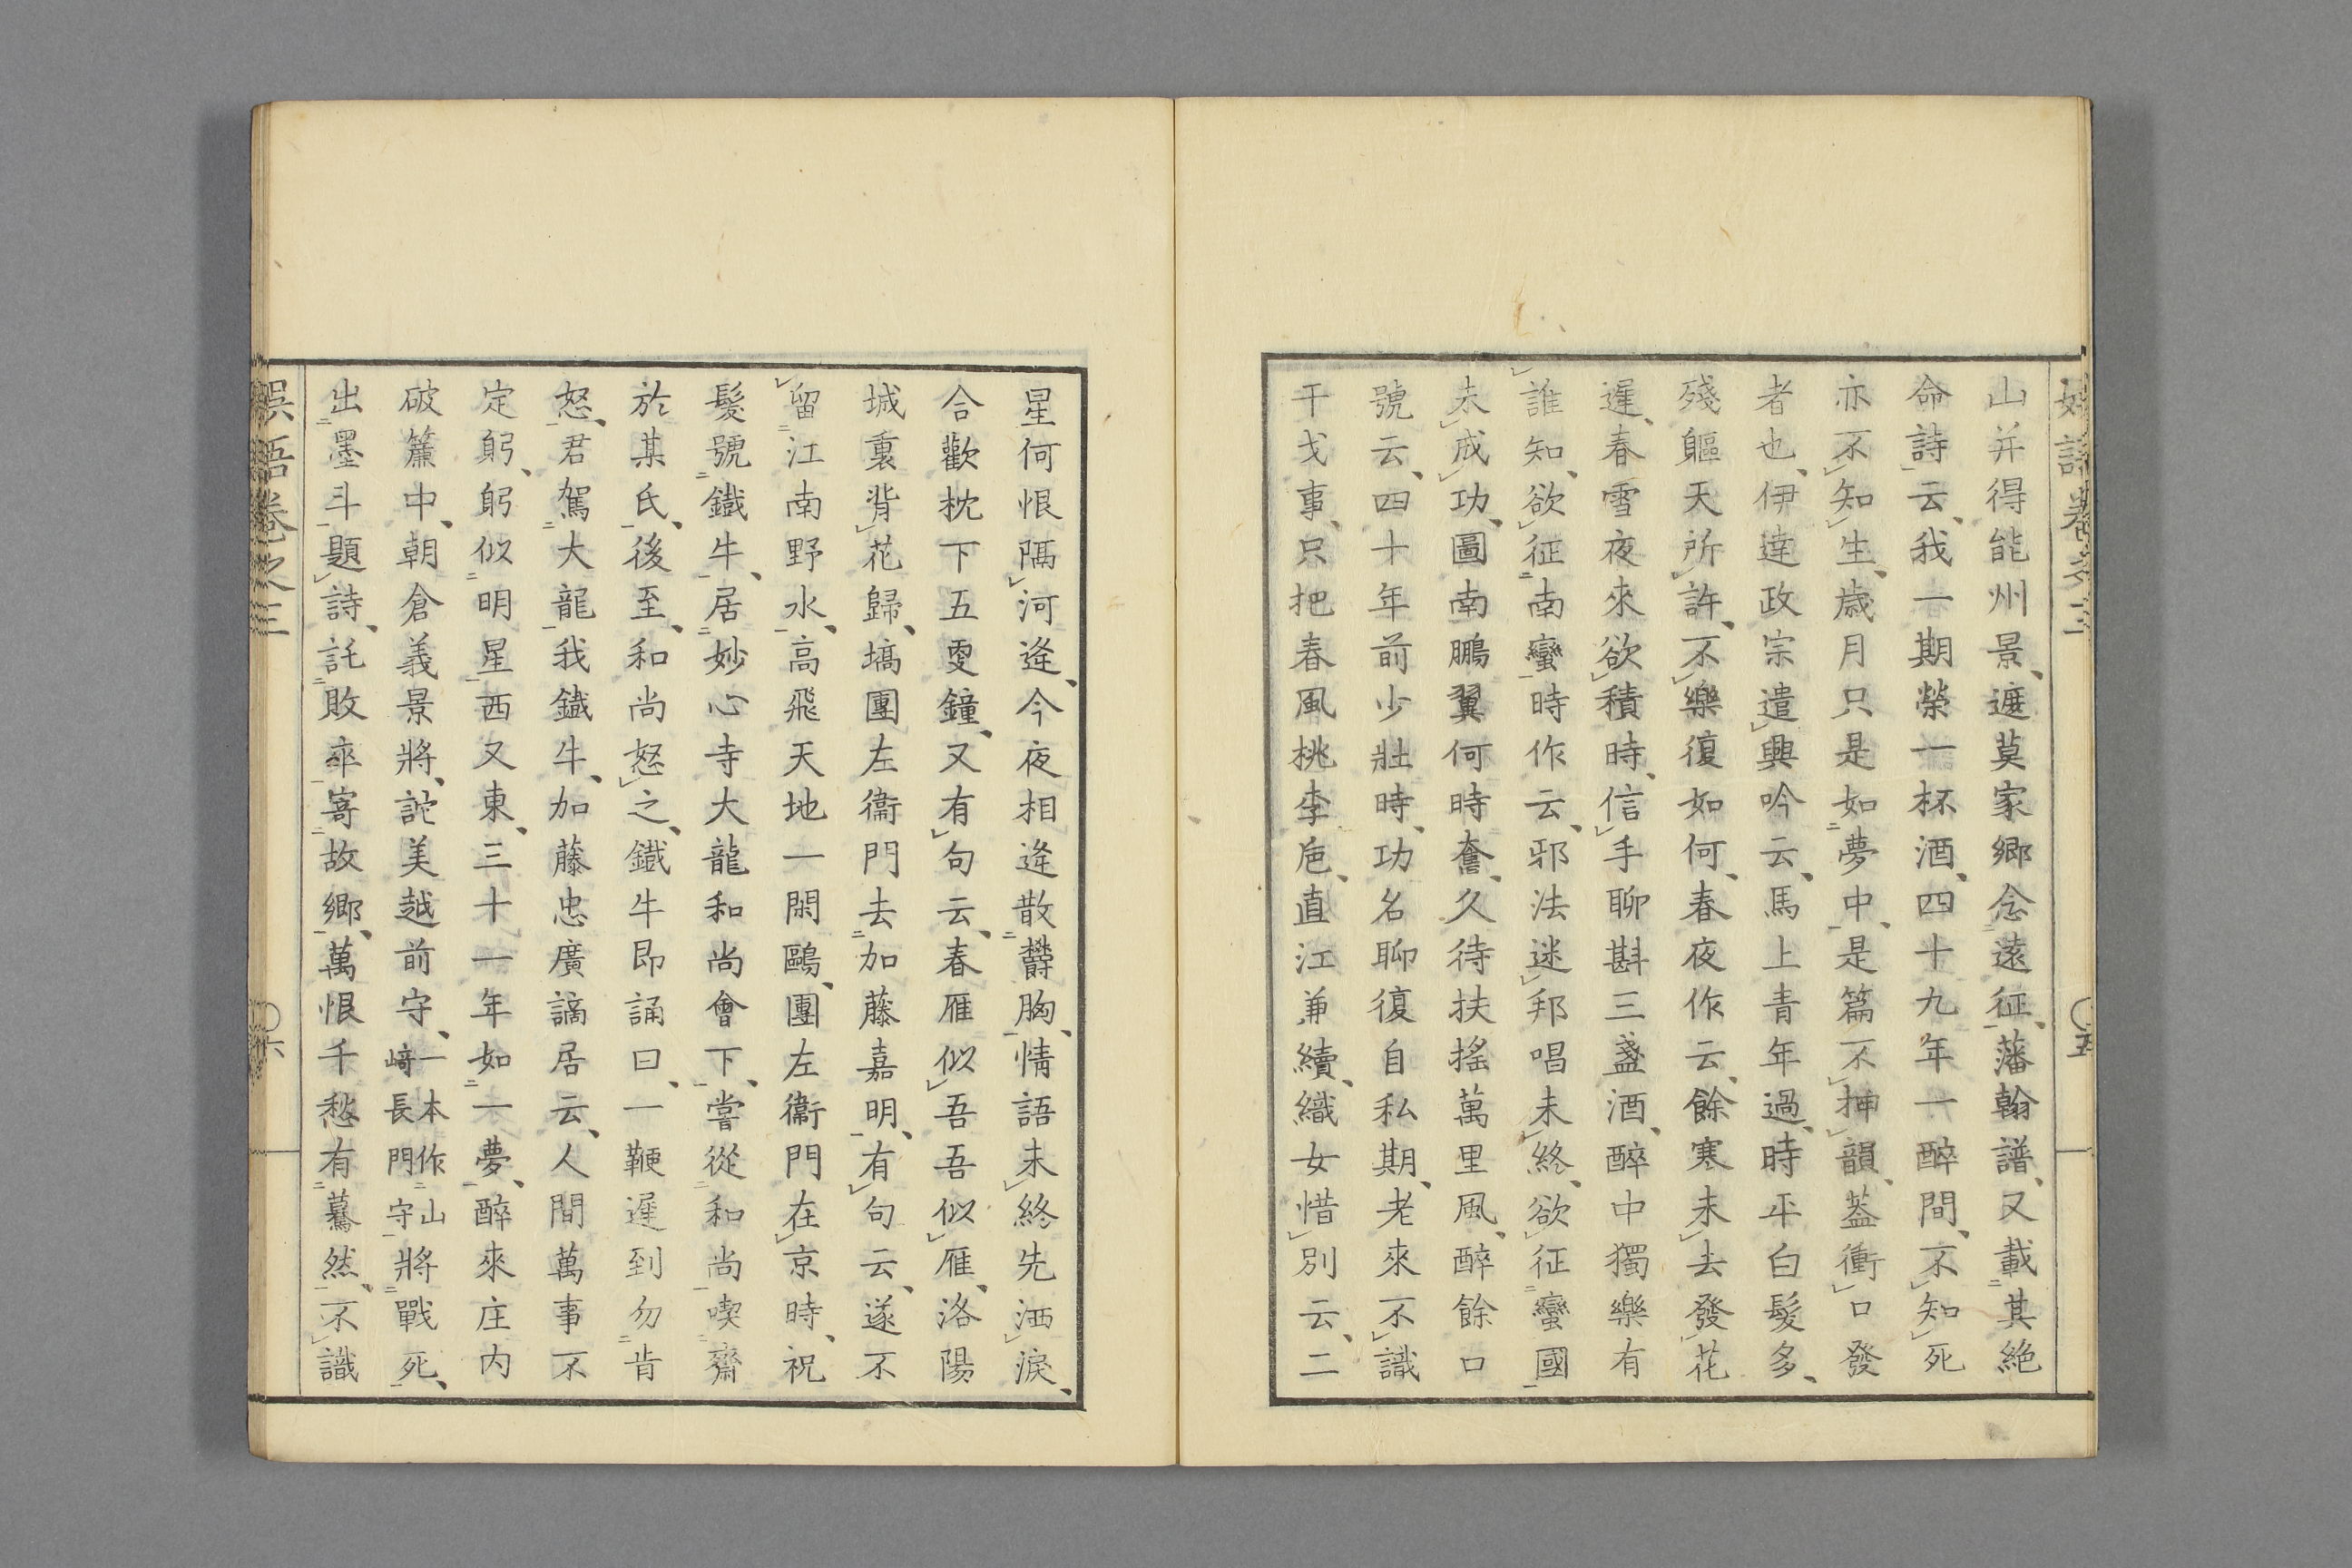 山并得能州景、遮莫家鄉念遠征、藩翰譜、又載其絶
命詩云、我一期榮一杯酒、四十九年一醉間、不知死
亦不知生、歳月只是如夢中、是篇不押韻、葢衝口發
者也、伊達政宗遣興吟云、馬上青年過、時平白髮多、
殘軀天所許、不樂復如何、春夜作云、餘寒未去發花
遲、春雪夜來欲積時、信手聊斟三盞酒、醉中獨樂有
誰知、欲征南蠻時作云、邪法迷邦唱未終、欲征蠻國
未成功、圖南鵬翼何時奮、久待扶搖萬里風、醉餘口
號云、四十年前少壯時、功名聊復自私期、老來不識
干戈事、只把春風桃李卮、直江兼續、織女惜別云、二
星何恨隔河逢、今夜相逢散欝胸、情語未終先洒淚、
合歡枕下五更鐘、又有句云、春雁似吾吾似雁、洛陽
城裏背花歸、塙團左衞門去加藤嘉明、有句云、遂不
留江南野水、高飛天地一閑鷗、團左衞門在京時、祝
髮號鐵牛、居妙心寺大龍和尚會下、嘗從和尚喫齋
於某氏、後至、和尚怒之、鐵牛即誦曰、一鞭遲到勿肯
怒、君駕大龍我鐵牛、加藤忠廣謫居云、人間萬事不
定躬、躬似明星西又東、三十一年如一夢、醉來庄内
破簾中、朝倉義景將、詑美越前守、一本作山﨑長門守將戰死、
出墨斗題詩、託敗卒寄故鄉、萬恨千愁有驀然、不識
娯語卷之三
〇六
〇五